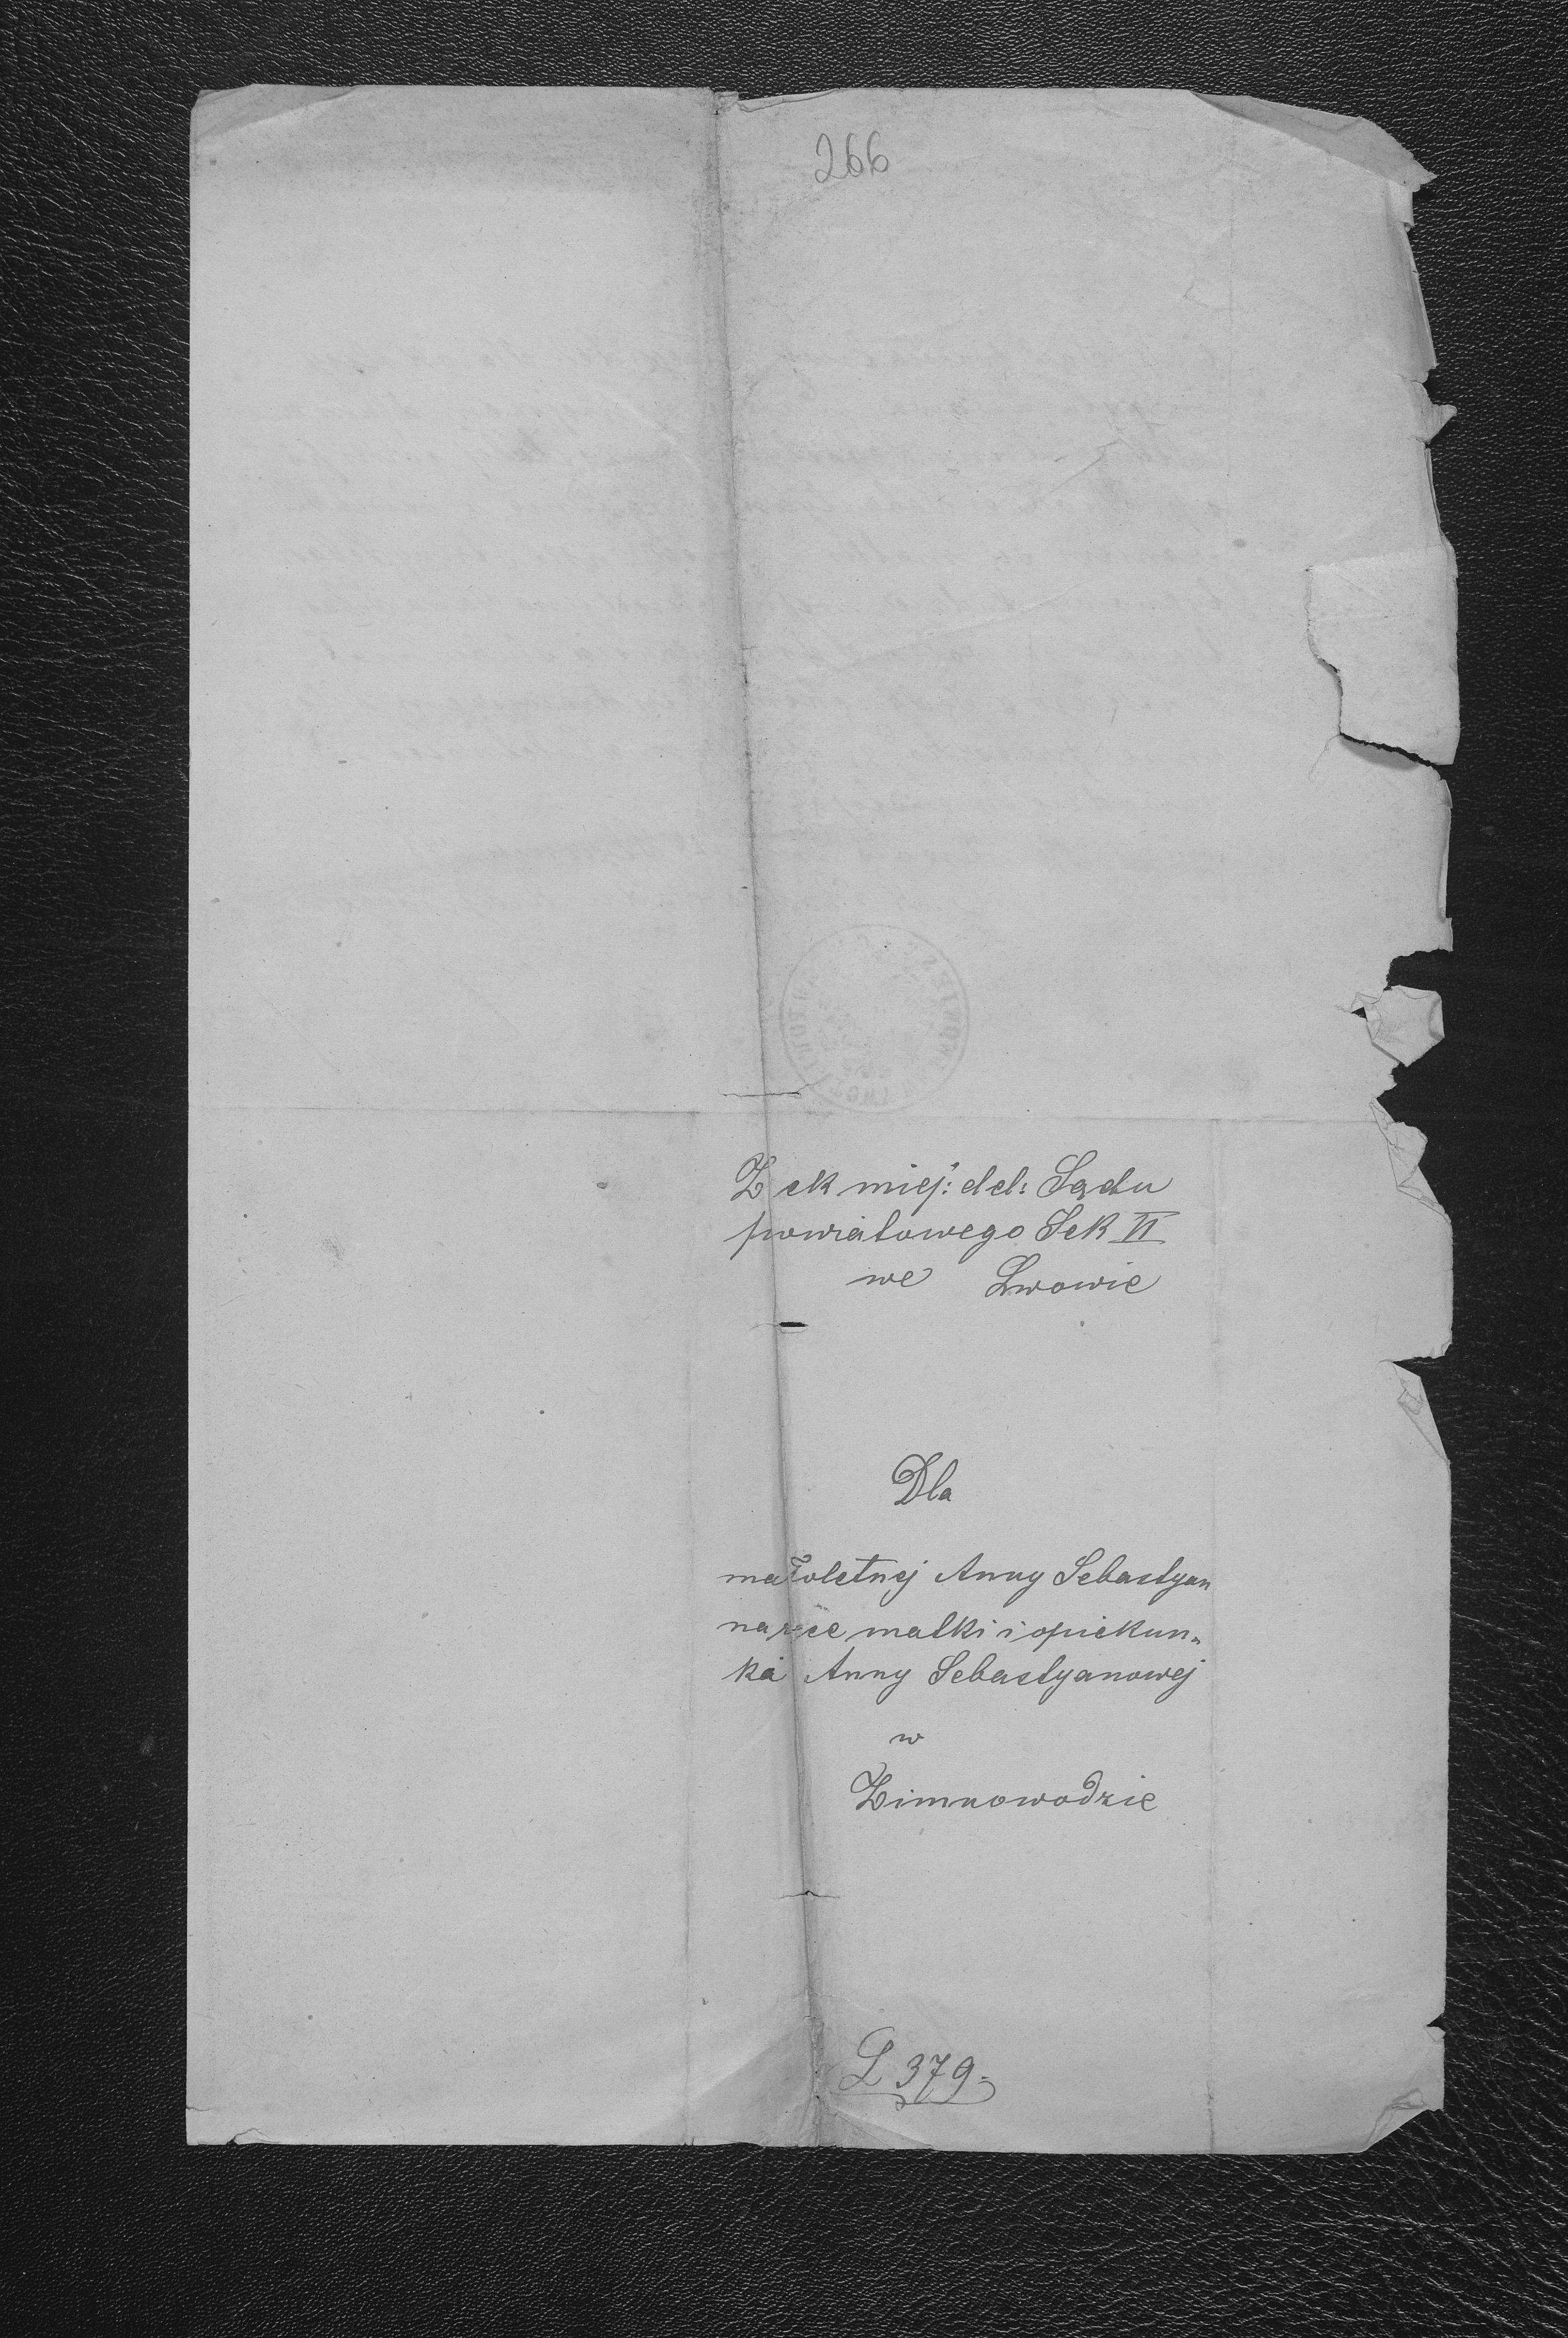 266
Z ck miej: del: Sądu
powiatowego Sek VI
we Lwowie
Dla
małoletnej Anny Sebastyan
na ręce matki i opiekun„
ki Anny Sebastyanowej
w
Zimnowodzie
L 379.